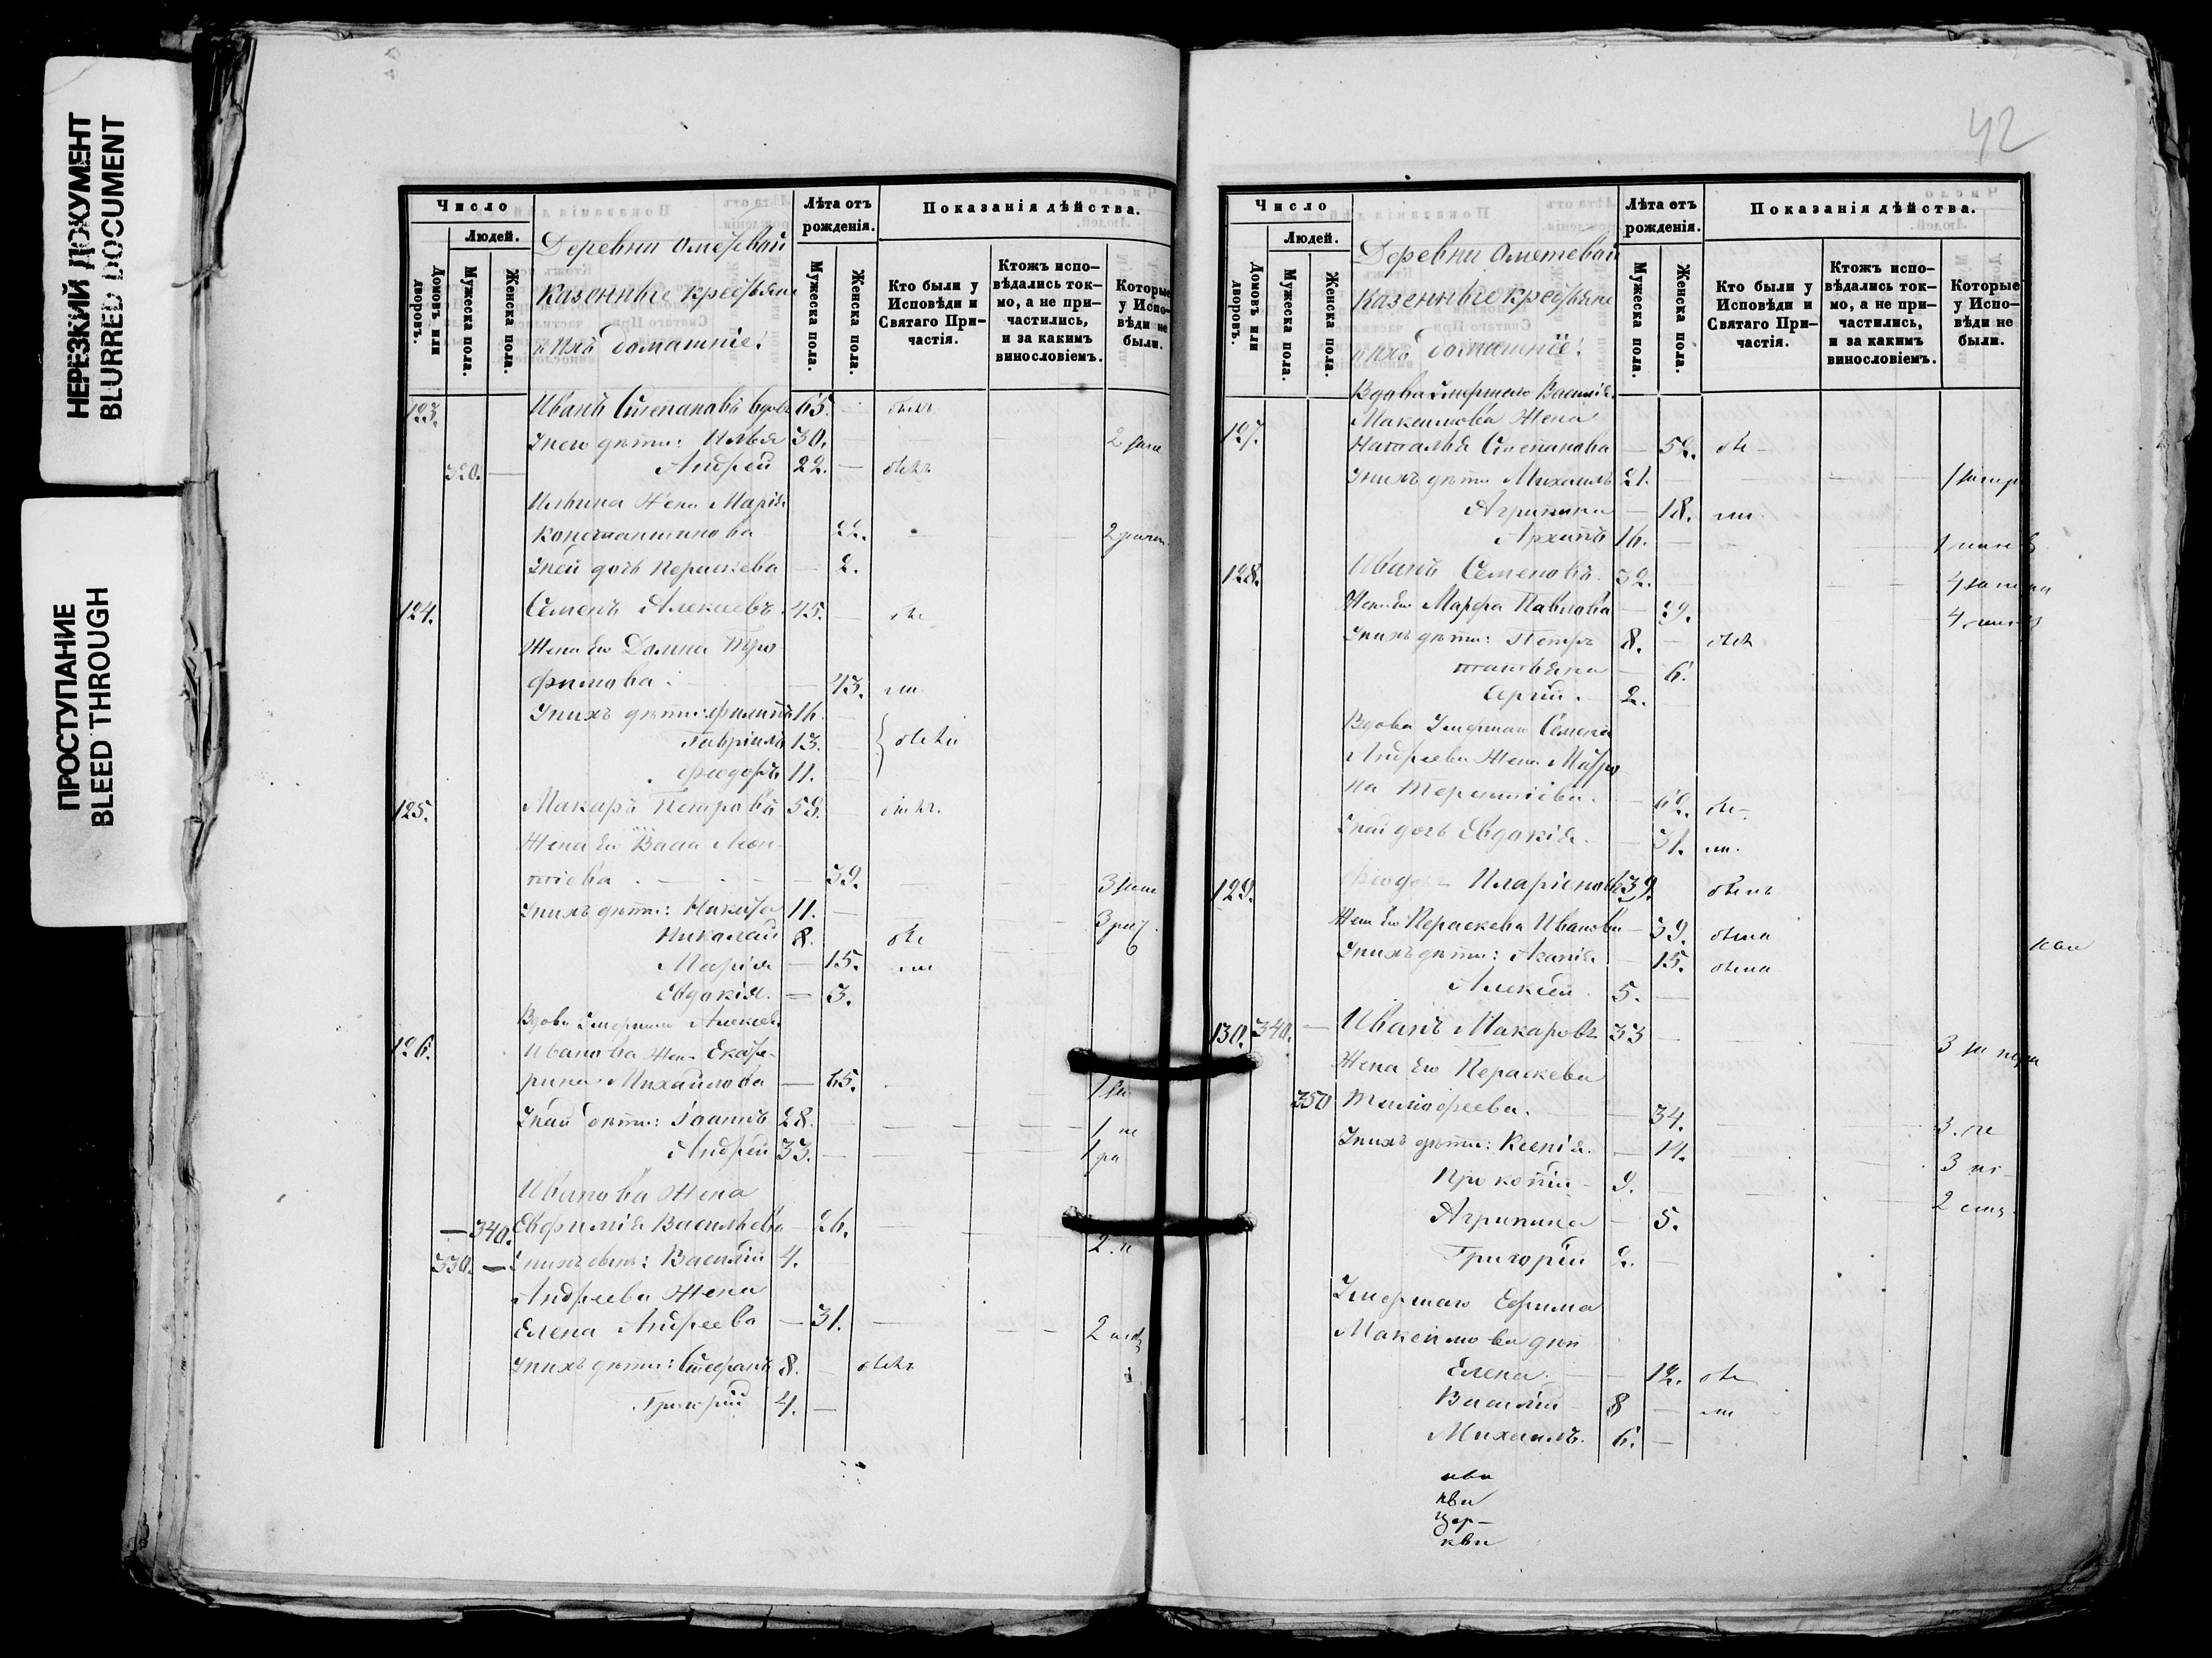 НЕРЕЗКИЙ ДОКУМЕНТ
BLURRED DOCUMENT
ПРОСТУПАНИЕ
BLEED THROUGH
Число
Людей.
Домовъ или дворовъ.
Мужеска пола.
Женска пола.
Деревни Ометевой
Казенные крестьяне
и ихъ домашніе:
Лѣта отъ рожденія.
Мужеска пола.
Женска пола.
Показанія дѣйства.
Кто были у Исповѣди и Святаго Причастія.
Ктожъ исповѣдались токмо, а не причастились, и за какимъ винословіемъ.
Которые у Исповѣди не были.
123. Иванъ Степановъ вдовъ 65.
У него дѣти: Илья 30. 2
320. — Андрей 22. —
Ильина Жена Марія
Константинова 22. 2
У ней дочь Пераскева — 2.
124. Семенъ Алексеевъ 45.
Жена Его Домна Тро
фимова — 43.
У нихъ дѣти: Филиппъ 16.
Гавріилъ 13.
Феодоръ 11.
125. Макаръ Петровъ 53.
Жена Его Васса Леон-
тіева — 39. 3
У нихъ дѣти: Никита 11. 3
Николай 8.
Марія — 15.
Евдокія. — 3.
Вдова Умершаго Алексея
126. Иванова Жена Екате-
рина Михайлова — 65. 1
У ней дѣти: Іоаннъ 28. 1
Андрей 33. 1
Иванова Жена
— 340. Евфимія Васильева — 26.
330. — У нихъ сынъ: Василій 4. 2
Андреева Жена
Елена Андреева — 31. 2
У нихъ дѣти: Стефанъ 8.
Григорій 4. —
42
Число
Людей.
Домовъ или дворовъ.
Мужеска пола.
Женска пола.
Деревни Ометевой
Казенные крестьяне
и ихъ домашніе:
Лѣта отъ рожденія.
Мужеска пола.
Женска пола.
Показанія дѣйства.
Кто были у Исповѣди и Святаго Причастія.
Ктожъ исповѣдались токмо, а не причастились, и за какимъ винословіемъ.
Которые у Исповѣди не были.
Вдова Умершаго Василія
Максимова Жена
127. Наталья Степанова — 52.
У нихъ дѣти Михаилъ 21. 1
Агрипина — 18.
Архипъ 16. 1
128. Иванъ Семеновъ. 32. 4
Жена Его Марфа Павлова — 29. 4
У нихъ дѣти: Петръ 8.
Татьяна — 6.
Сергій. 2.
Вдова Умершаго Семена
Андреева Жена Матро
на Терентіева. — 62.
У ней дочь Евдокія. — 31.
129. Феодоръ Иларіоновъ 39.
Жена Его Пераскева Иванова — 39.
У нихъ дѣти: — 15.
Алексей 5.
130. 340. — Иванъ Макаровъ 33 3
Жена Его Пераскева
350 Тимофеева. — 34. 3
У нихъ дѣти: Ксенія. — 14. 3
Прокопій 9. 2
Агрипина — 5.
Григорій 2.
Умершаго Ефима
Максимова дѣти
Елена. — 12.
Василій 8
Михаилъ. 6. —
кви
Цер-
кви